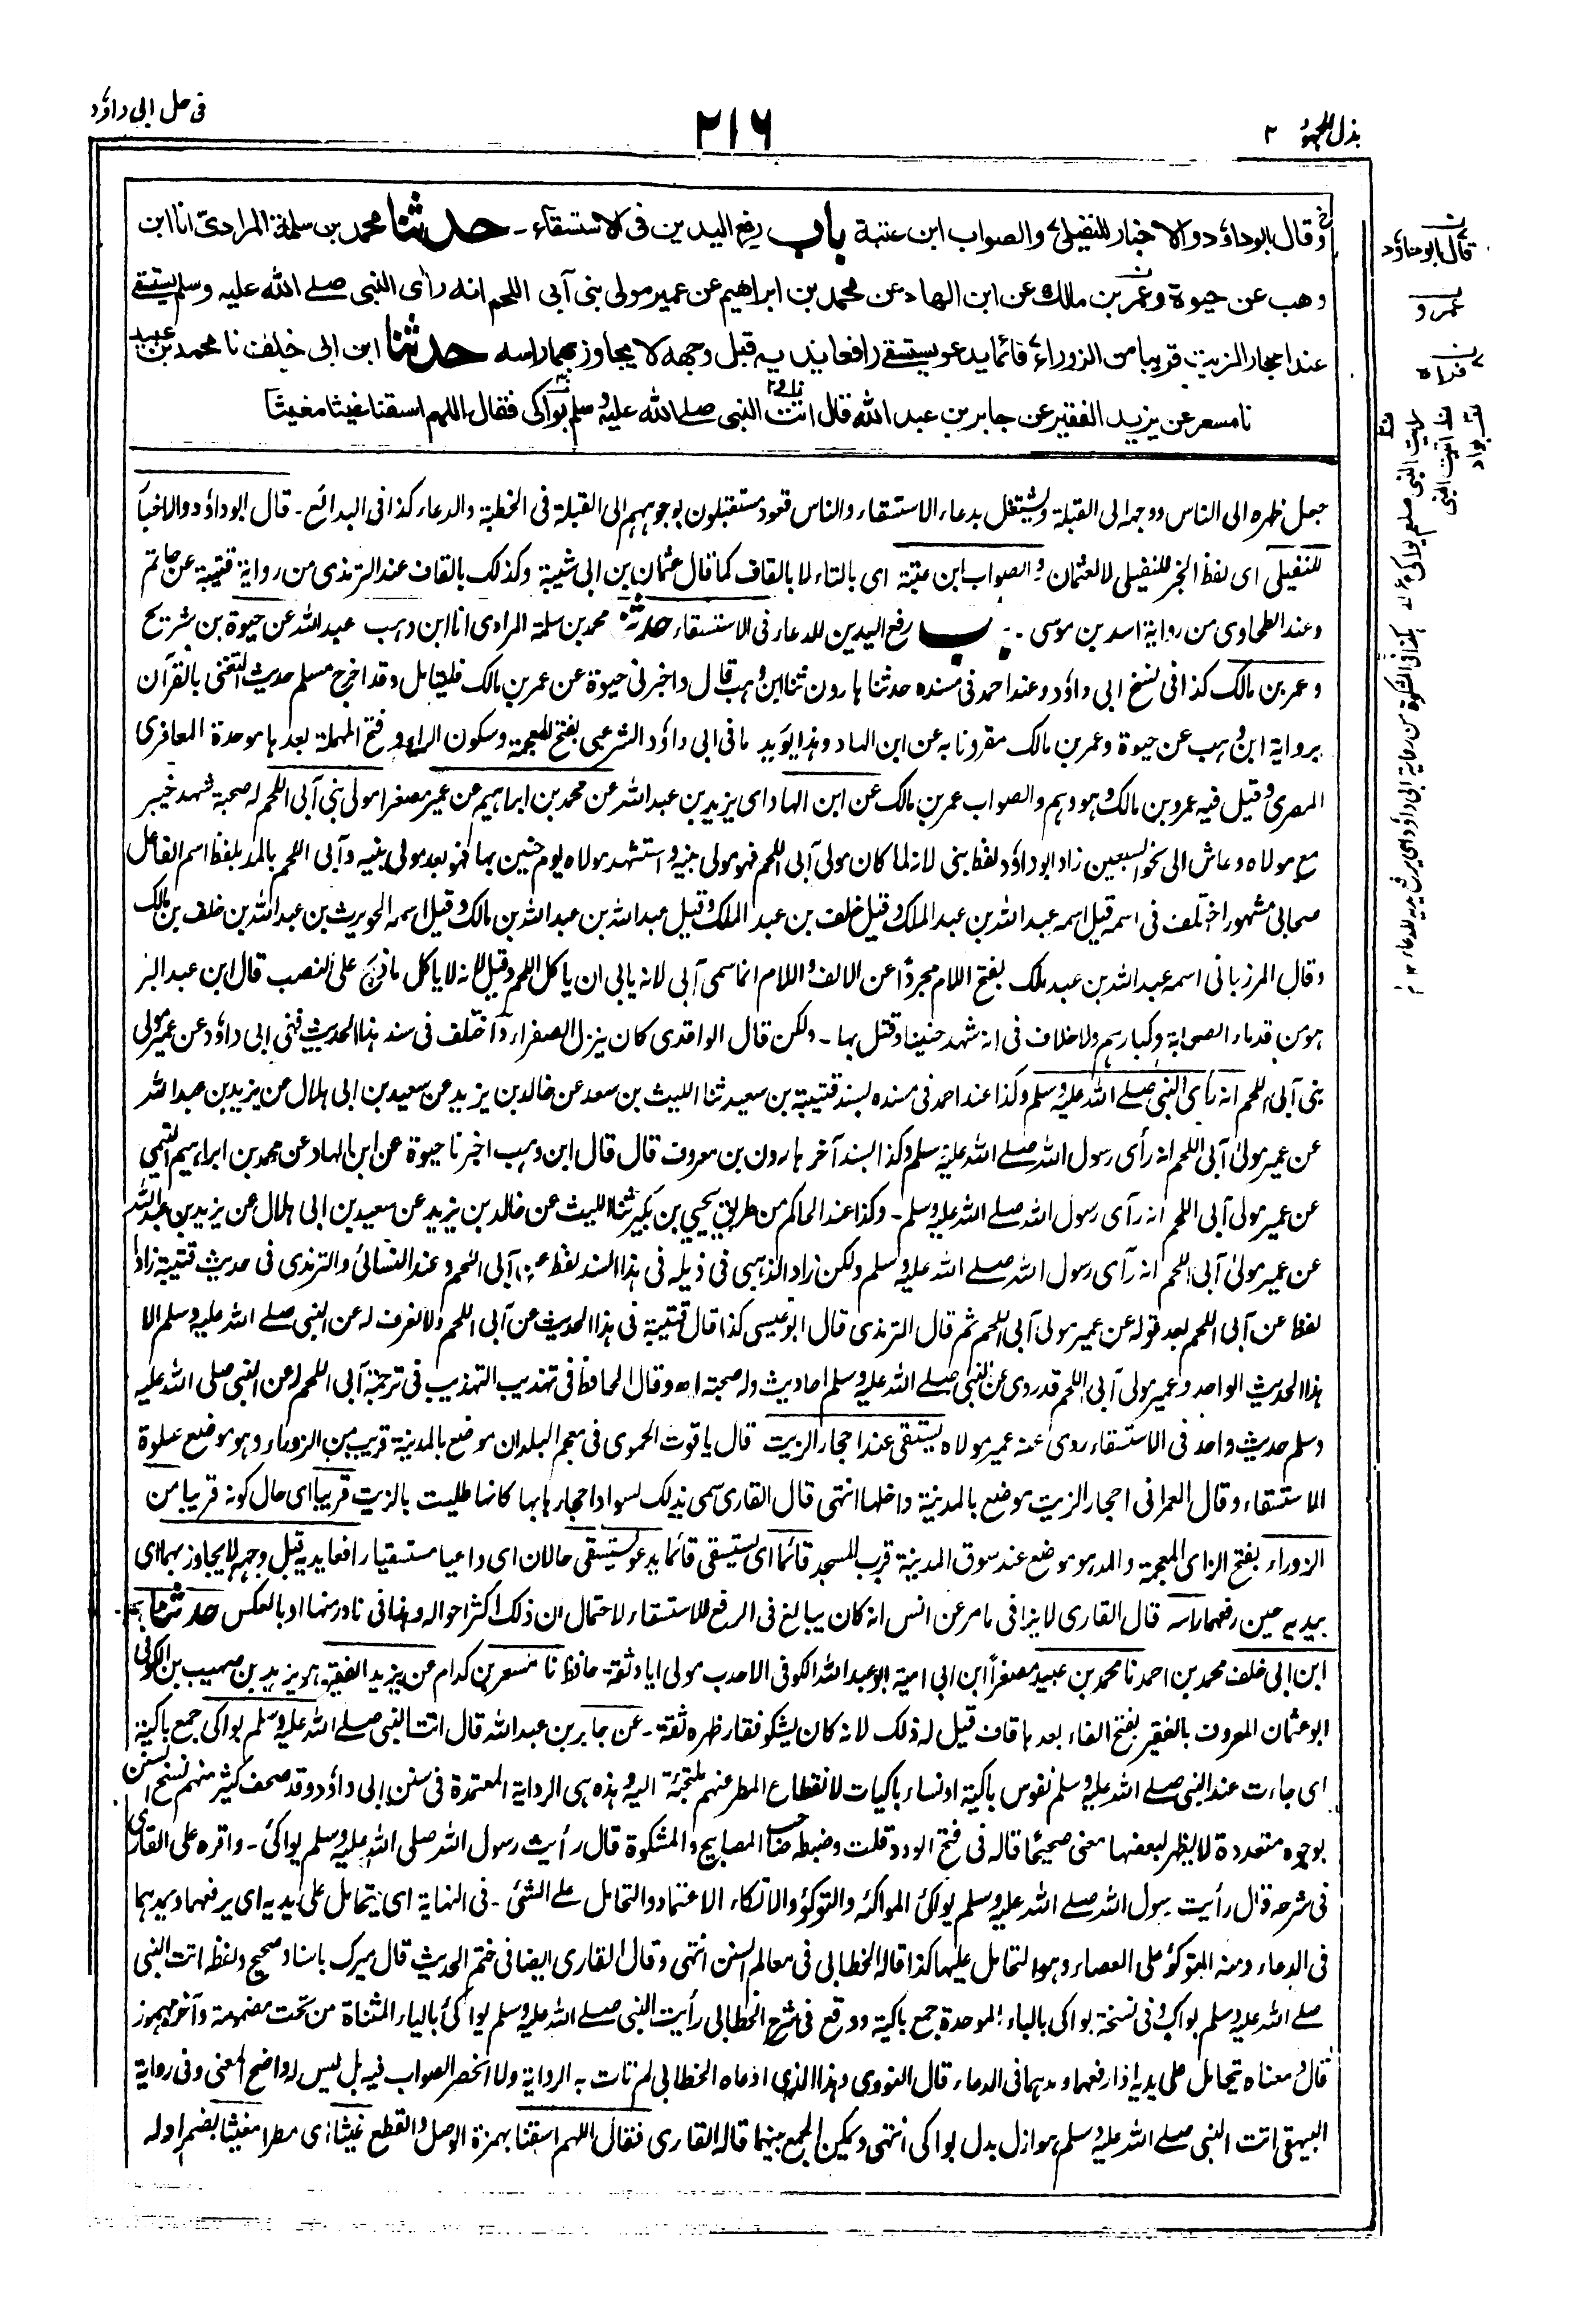 بذل المجهود ٢
٢١٦
فى حل ابى داؤد
قال ابو داؤد والاخبار للنفيلى والصواب ابن عتبة باب رفع اليدين فى الاستسقاء ـ حدثنا محمد بن سلمة المرادى انا ابن
وهب عن حيوة وعمر بن مالك عن ابن الهاد عن محمد بن ابراهيم عن عمير مولى بنى آبى اللحم انه رأى النبى صلے الله عليه وسلم يستسقى
عند احجار الزيت قريبا من الزوراء قائما يدعو يستسقى رافعا يديه قبل وجهه لا يجاوز بهما راسه حدثنا ابن ابى خلف نا محمد بن عبيد
نا مسعر عن يزيد الفقير عن جابر بن عبد الله قال اتت النبى صلے الله عليه وسلم بواكى فقال اللهم اسقنا غيثا مغيثا
جعل ظهره الى الناس ووجهه الى القبلة ويشتغل بدعاء الاستسقاء والناس قعود مستقبلون بوجوههم الى القبلة فى الخطبة والدعاء كذا فى البدائع ـ قال ابو داؤد والاخبار
للنفيلى اى لفظ الخبر للنفيلى لا لعثمان والصواب ابن عتبة اى بالتاء لا بالقاف كما قال عثمان بن ابى شيبة وكذلك بالقاف عند الترمذى من رواية قتيبة عن حاتم
وعند الطحاوى من رواية اسد بن موسى ـ باب رفع اليدين للدعاء فى الاستسقاء حدثنا محمد بن سلمة المرادى انا ابن وهب عبد الله عن حيوة بن شريح
وعمر بن مالك كذا فى نسخ ابى داؤد وعند احمد فى مسنده حدثنا هارون ثنا ابن وهب قال واخبرنى حيوة عن عمر بن مالك فليتامل وقد اخرج مسلم حديث التغنى بالقرآن
برواية ابن وهب عن حيوة وعمر بن مالك مقرونا به عن ابن الهاد وهذا يؤيد ما فى ابى داؤد الشرعبى بفتح المعجمة وسكون الراء وفتح المهملة بعدها موحدة المعافرى
المصرى وقيل فيه عمرو بن مالك وهو وهم والصواب عمر بن مالك عن ابن الهاد اى يزيد بن عبد الله عن محمد بن ابراهيم عن عمير مصغرا مولى بنى آبى اللحم له صحبة شهد خيبر
مع مولاه وعاش الى نحو السبعين زاد ابو داؤد لفظ بنى لانه لما كان مولى آبى اللحم فهو مولى بنيه واستشهد مولاه يوم حنين بها فهو بعد مولى بنيه وآبى اللحم بالمد بلفظ اسم الفاعل
صحابى مشهور اختلف فى اسمه قيل اسمه عبد الله بن عبد الملك وقيل خلف بن عبد الملك وقيل عبد الله بن عبد الله بن مالك وقيل اسمه الحويرث بن عبد الله بن خلف بن مالك
وقال المرزبانى اسمه عبد الله بن عبد ملك بفتح اللام مجردًا عن الالف واللام انما سمى آبى لانه يابى ان ياكل اللحم وقيل لانه لا ياكل ما ذبح على النصب قال ابن عبد البر
هو من قدماء الصحابة وكبارهم ولا خلاف فى انه شهد حنينا وقتل بها ـ ولكن قال الواقدى كان ينزل الصفراء واختلف فى سند هذا الحديث ففى ابى داؤد عن عمير مولى
بنى آبى اللحم انه رأى النبى صلے الله عليه وسلم وكذا عند احمد فى مسنده بسند قتيبة بن سعيد ثنا الليث بن سعد عن خالد بن يزيد عن سعيد بن ابى هلال عن يزيد بن عبد الله
عن عمير مولى آبى اللحم انه رأى رسول الله صلے الله عليه وسلم وكذا بسند آخر هارون بن معروف قال قال ابن وهب اخبرنا حيوة عن ابن الهاد عن محمد بن ابراهيم التيمى
عن عمير مولى آبى اللحم انه رآى رسول الله صلے الله عليه وسلم ـ وكذا عند الحاكم من طريق يحيى بن بكير ثنا الليث عن خالد بن يزيد عن سعيد بن ابى هلال عن يزيد بن عبد الله
عن عمير مولى آبى اللحم انه رآى رسول الله صلے الله عليه وسلم ولكن زاد الذهبى فى ذيله فى هذا السند لفظ عن آبى اللحم وعند النسائى والترمذى فى حديث قتيبة زادا
لفظ عن آبى اللحم بعد قوله عن عمير مولى آبى اللحم ثم قال الترمذى قال ابو عيسى كذا قال قتيبة فى هذا الحديث عن آبى اللحم ولا نعرف له عن النبى صلے الله عليه وسلم الا
هذا الحديث الواحد وعمير مولى آبى اللحم قد روى عن النبى صلے الله عليه وسلم احاديث وله صحبة اه وقال الحافظ فى تهذيب التهذيب فى ترجمة آبى اللحم له عن النبى صلى الله عليه
وسلم حديث واحد فى الاستسقاء روى عنه عمير مولاه يستسقى عند احجار الزيت قال ياقوت الحموى فى معجم البلدان موضع بالمدينة قريب من الزوراء وهو موضع صلوة
الاستسقاء وقال العمرانى احجار الزيت موضع بالمدينة داخلها انتهى قال القارى سمى بذلك لسواد احجارها بها كانها طليت بالزيت قريبا اى حال كونه قريبا من
الزوراء بفتح الزاى المعجمة والمد هو موضع عند سوق المدينة قرب المسجد قائما اى يستسقى قائما يدعو يستسقى حالان اى داعيا مستسقيا رافعا يديه قبل وجهه لا يجاوز بهما اى
بيديه حين رفعهما راسه قال القارى لا ينافى ما مر عن انس انه كان يبالغ فى الرفع للاستسقاء لاحتمال ان ذلك اكثر احواله وهذا فى نادر منها او بالعكس حدثنا
ابن ابى خلف محمد بن احمد نا محمد بن عبيد مصغراً ابن ابى امية ابو عبد الله الكوفى الاحدب مولى اياد ثقة حافظ نا مسعر بن كدام عن يزيد الفقير هو يزيد بن صهيب بن الكوفى
ابو عثمان المعروف بالفقير بفتح الفاء بعدها قاف قيل له ذلك لانه كان يشكو فقار ظهره ثقة ـ عن جابر بن عبد الله قال اتت النبى صلے الله عليه وسلم بواكى جمع باكية
اى جاءت عند النبى صلے الله عليه وسلم نفوس باكية او نساء باكيات لانقطاع المطر عنهم ملتجئة اليه وهذه هى الرواية المعتمدة فى سنن ابى داؤد وقد صحف كثير منهم نسخ السنن
بوجوه متعددة لا يظهر لبعضها معنى صحيحا قاله فى فتح الودود قلت وضبطه صاحب المصابيح والمشكوة قال رأيت رسول الله صلى الله عليه وسلم يواكئ ـ واقره على القارى
فى شرحه قال رأيت رسول الله صلے الله عليه وسلم يواكئ المواكئة والتوكؤ والاتكاء الاعتماد والتحامل علے الشئ ـ فى النهاية اى يتحامل على يديه اى يرفعهما ويمدهما
فى الدعاء ومنه التوكؤ على العصاء وهو التحامل عليها كذا قاله الخطابى فى معالم السنن انتهى وقال القارى ايضا فى ختم الحديث قال ميرك باسناد صحيح ولفظه اتت النبى
صلے الله عليه وسلم بواك وفى نسخة بواكى بالباء الموحدة جمع باكية ووقع فى شرح الخطابى رأيت النبى صلے الله عليه وسلم يواكئ بالياء المثناة من تحت مضمومة وآخره مهموز
قال ومعناه يتحامل على يديه اذا رفعهما ومدهما فى الدعاء قال النووى وهذا الذى ادعاه الخطابى لم تات به الرواية ولا انحصر الصواب فيه بل ليس له واضح المعنى وفى رواية
البيهقى اتت النبى صلے الله عليه وسلم هوازل بدل بواكى انتهى ويمكن الجمع بينهما قاله القارى فقال اللهم اسقنا بهمزة الوصل والقطع غيثا اى مطرا مغيثا بضم اوله
قال ابو داؤد
عمرو
رايت النبى صلعم يواكى
هكذا فى المشكوة من رواية ابى داؤد